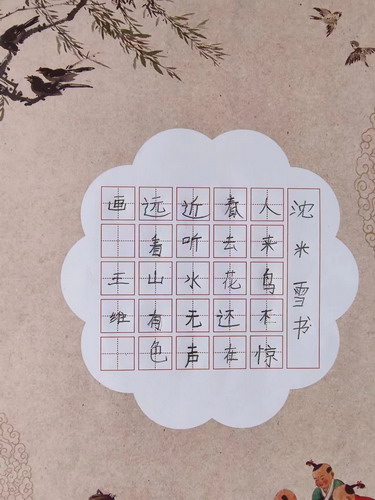 画 王维
远看山有色
近听水无声
春去花还在
人来鸟不惊
沈米雪书